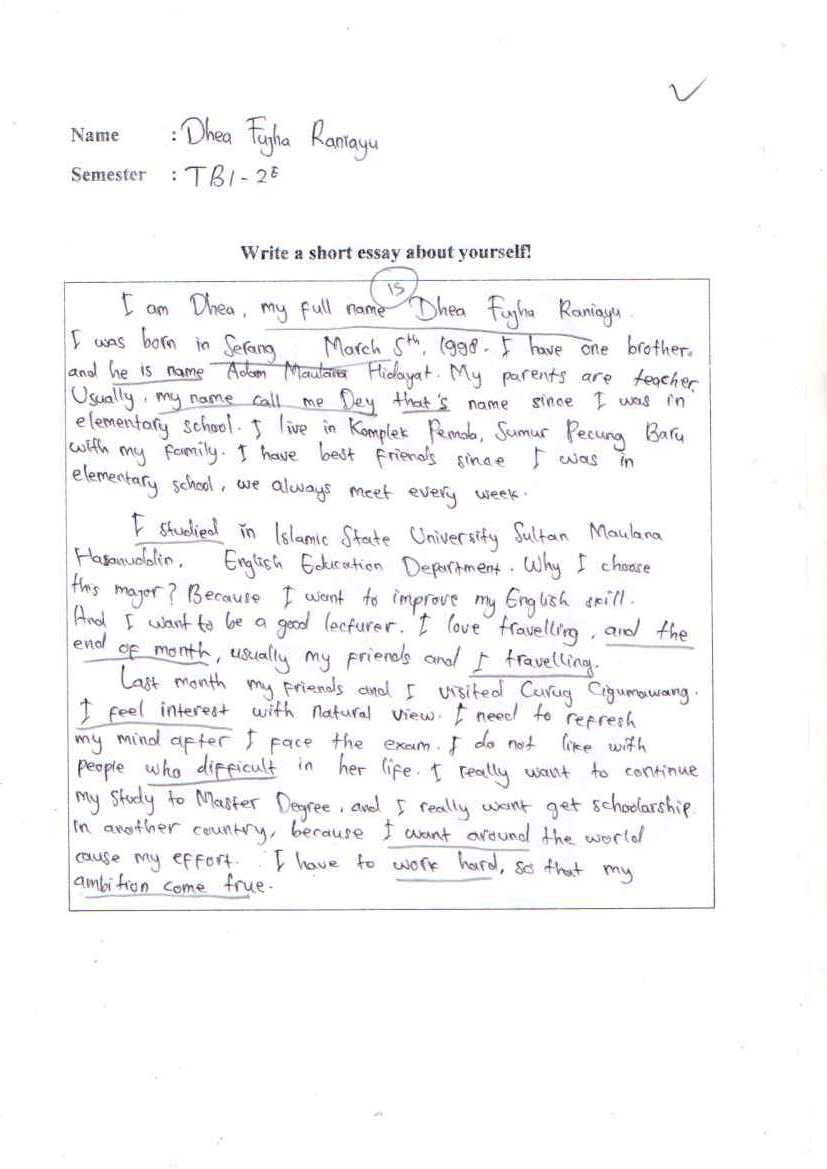 Name : Dhea Fujha Raniayu
Semester : TBI-2E
Write a short essay about yourself!
15
I am Dhea, my full name Dhea Fujha Raniayu.
I was born in Serang March 5th, 1998. I have one brother.
and he is name Adam Maulana Hidayat. My parents are teacher.
Usually, my name call me Dey that's name since I was in
elementary school. I live in Komplek Pemda, Sumur Pecung Baru
with my family. I have best friends since I was in
elementary school, we always meet every week.
I studied in Islamic State University Sultan Maulana
Hasanuddin, English Education Department. Why I choose
this major? Because I want to improve my English skill.
And I want to be a good lecturer. I love travelling, and the
end of month, usually my friends and I travelling.
Last month my friends and I visited Curug Cigumawang.
I feel interest with natural view. I need to refresh
my mind after I face the exam. I do not like with
people who difficult in her life. I really want to continue
my study to Master Degree, and I really want get schoolarship
in another country, because I want around the world
cause my effort. I have to work hard, so that my
ambition come true.